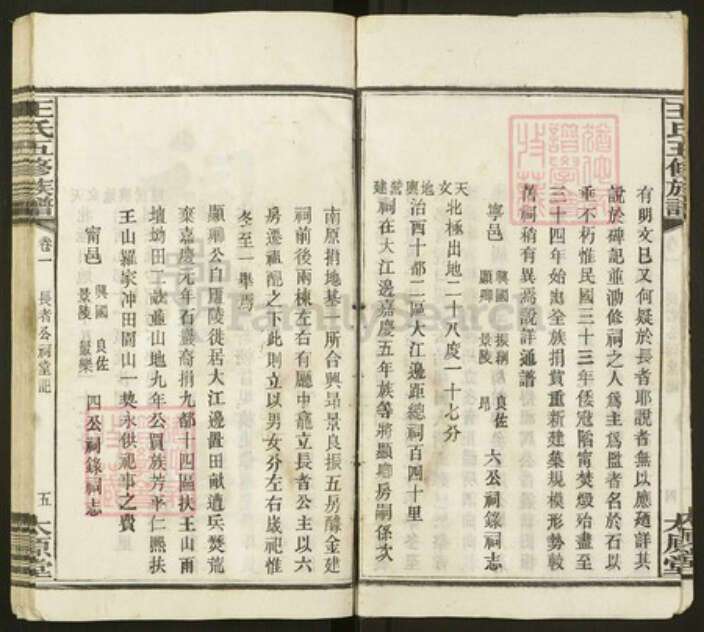 王氏五修族譜
有明文已又何疑於長者耶說者無以應廼詳其
說於碑記並泐修祠之人為主為監者名於石以
垂不朽惟民國三十三年倭寇陷甯焚燬殆盡至
三十四年始由全族捐貲重新建築規模形勢較
舊祠稍有異焉說詳通譜
甯邑 興國 振翱 良佐 顯卿 景陵 昂 六公祠錄祠志
天文北極出地二十八度一十七分
地輿治西十都二區大江邊距總祠百四十里
營建祠在大江邊嘉慶五年族等將顯卿房嗣係次
太原堂
南原捐地基一所合興昂景良振五房醵金建
祠前後兩棟左右有廳中龕立長者公主以六
房遷祖配之下此則立以男女分左右歲祀惟
冬至一舉焉
顯卿公白廟陵徙居大江邊置田畝遭兵焚荒
棄嘉慶元年石巖裔捐九都十四區扶王山南
壙坳田工畝並山地九年公買族芳平仁熙扶
王山羅家冲田園山一契永供祀事之費
甯邑 興國 良佐 景陵 巖樂 四公祠錄祠志
王氏五修族譜
卷一
長者公祠堂記
五
太原堂
FamilySearch